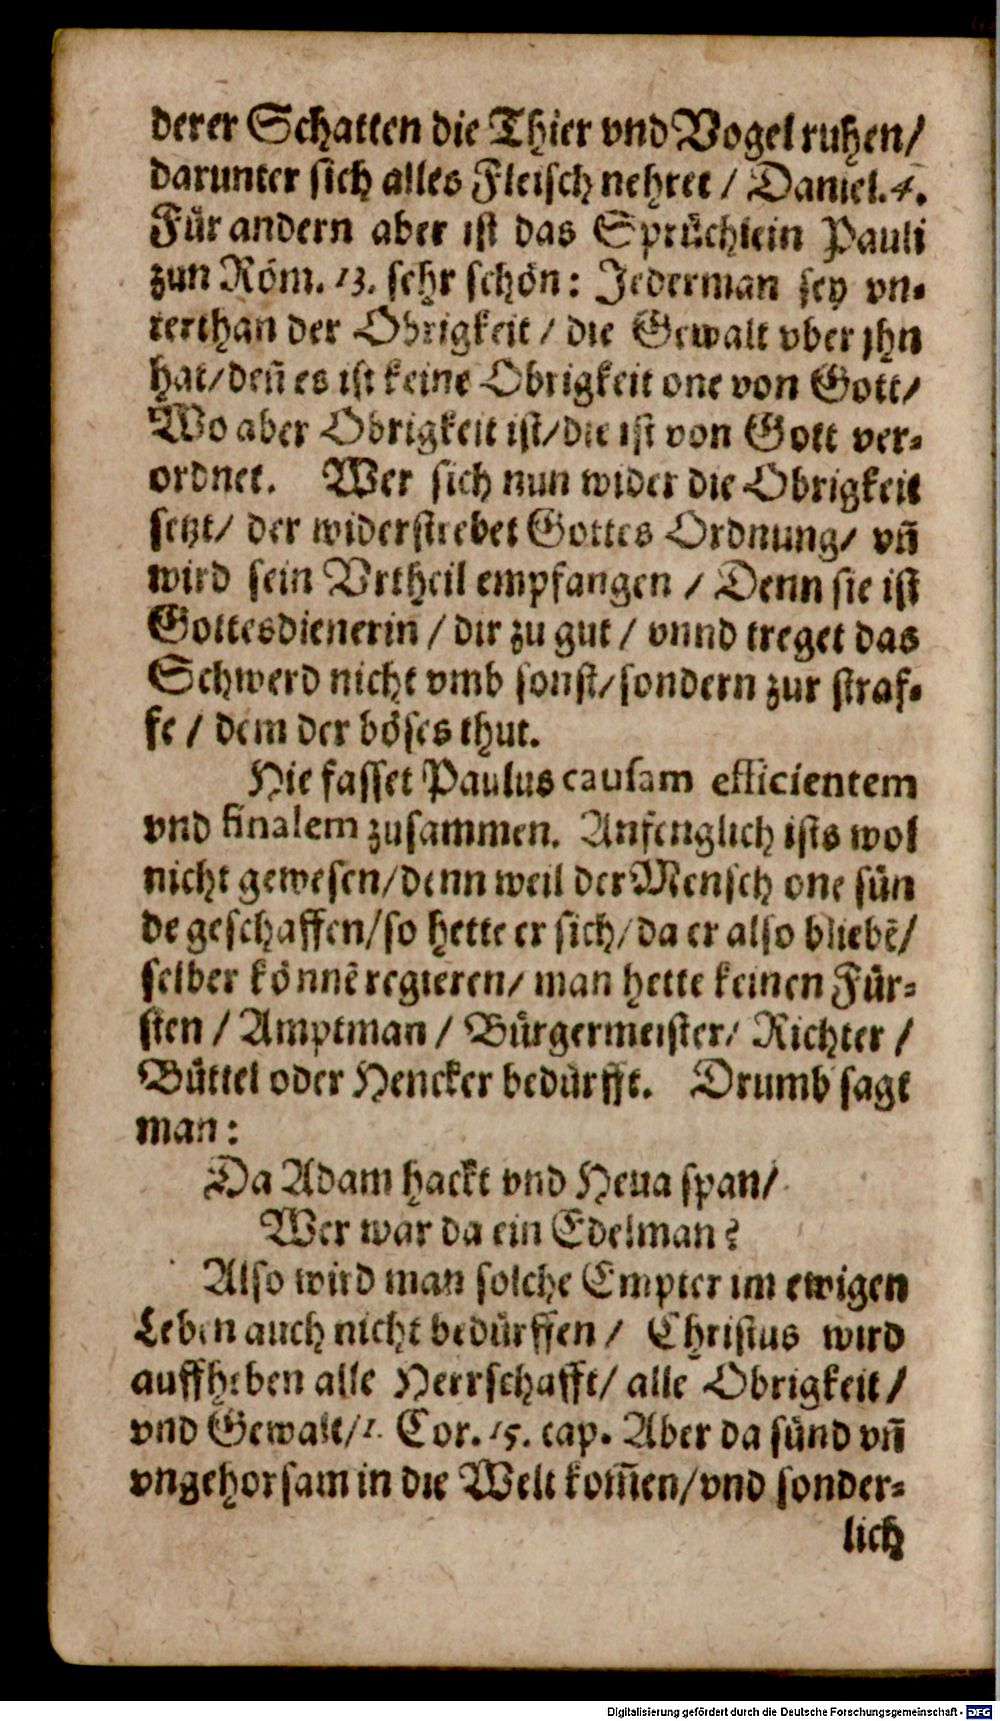 derer Schatten die Thier vnd Vogel ruhen/
darunter sich alles Fleisch nehret / Daniel. 4.
Für andern aber ist das Sprüchlein Pauli
zun Röm. 13. sehr schön: Jederman sey vn-
terthan der Obrigkeit / die Gewalt vber jhn
hat/deñ es ist keine Obrigkeit one von Gott/
Wo aber Obrigkeit ist/die ist von Gott ver-
ordnet. Wer sich nun wider die Obrigkeit
setzt/ der widerstrebet Gottes Ordnung/ vñ
wird sein Vrtheil empfangen / Denn sie ist
Gottesdienerin / dir zu gut / vnnd treget das
Schwerd nicht vmb sonst/sondern zur straf-
fe / dem der böses thut.
Hie fasset Paulus causam efficientem
vnd finalem zusammen. Anfenglich ists wol
nicht gewesen/denn weil der Mensch one sün
de geschaffen/so hette er sich/da er also bliebẽ/
selber könnẽ regieren/ man hette keinen Für-
sten / Amptman / Bürgermeister/ Richter /
Büttel oder Hencker bedürfft. Drumb sagt
man:
Da Adam hackt vnd Heua span/
Wer war da ein Edelman?
Also wird man solche Empter im ewigen
Leben auch nicht bedürffen / Christus wird
auffheben alle Herrschafft/ alle Obrigkeit/
vnd Gewalt/1. Cor. 15. cap. Aber da sünd vñ
vngehorsam in die Welt kom̃en/vnd sonder-
lich
Digitalisierung gefördert durch die Deutsche Forschungsgemeinschaft - DFG